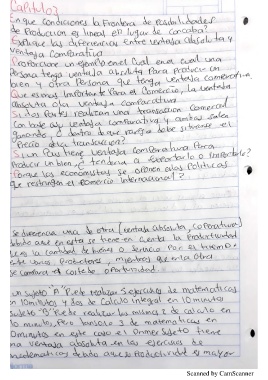 Capitulo 3
En que condiciones la Frontera de Posibilidades
de Produccion es lineal en lugar de concava?
Explique las diferencias Entre ventaja absoluta y
ventaja comparativa
Proporcione un ejemplo en el cual en el cual una
Persona tenga ventaja absoluta Para producir un
bien y otra Persona que tenga ventaja comparativa
Que es mas importante Para el Comercio, la ventaja
absoluta o la ventaja comparativa
Si dos Partes realizan una transacción comercial
Con base en ventaja comparativa y ambas salen
ganando dentro de que rango debe situarse el
Precio de la transaccion?
Si un Pais tiene ventaja comparativa Para
Producir un bien, tendera a exportarlo o importarlo?
Porque los economistas se oponen a las Politicas
que restringen el comercio internacional?
Se diferencia una de otra (ventaja absoluta, comparativa)
debido a que en esta se tiene en cuenta la Productividad
la cantidad de bienes o servicio Por el tiempo
productores, mientras que en la otra
se compara el costo de oportunidad.
un sujeto "A" Puede realizar 5 ejercicios de matematicas
en 10 minutos y dos de calculo integral en 10 minutos
sujeto "B" Puede realizar los mismos 2 de calculo en
10 minutos, Pero tan solo 3 de matematicas en
10 minutos en este caso el Primer sujeto tiene
una ventaja absoluta en los ejercicios de
matematicas debido a que su Productividad es mayor
Scanned by CamScanner